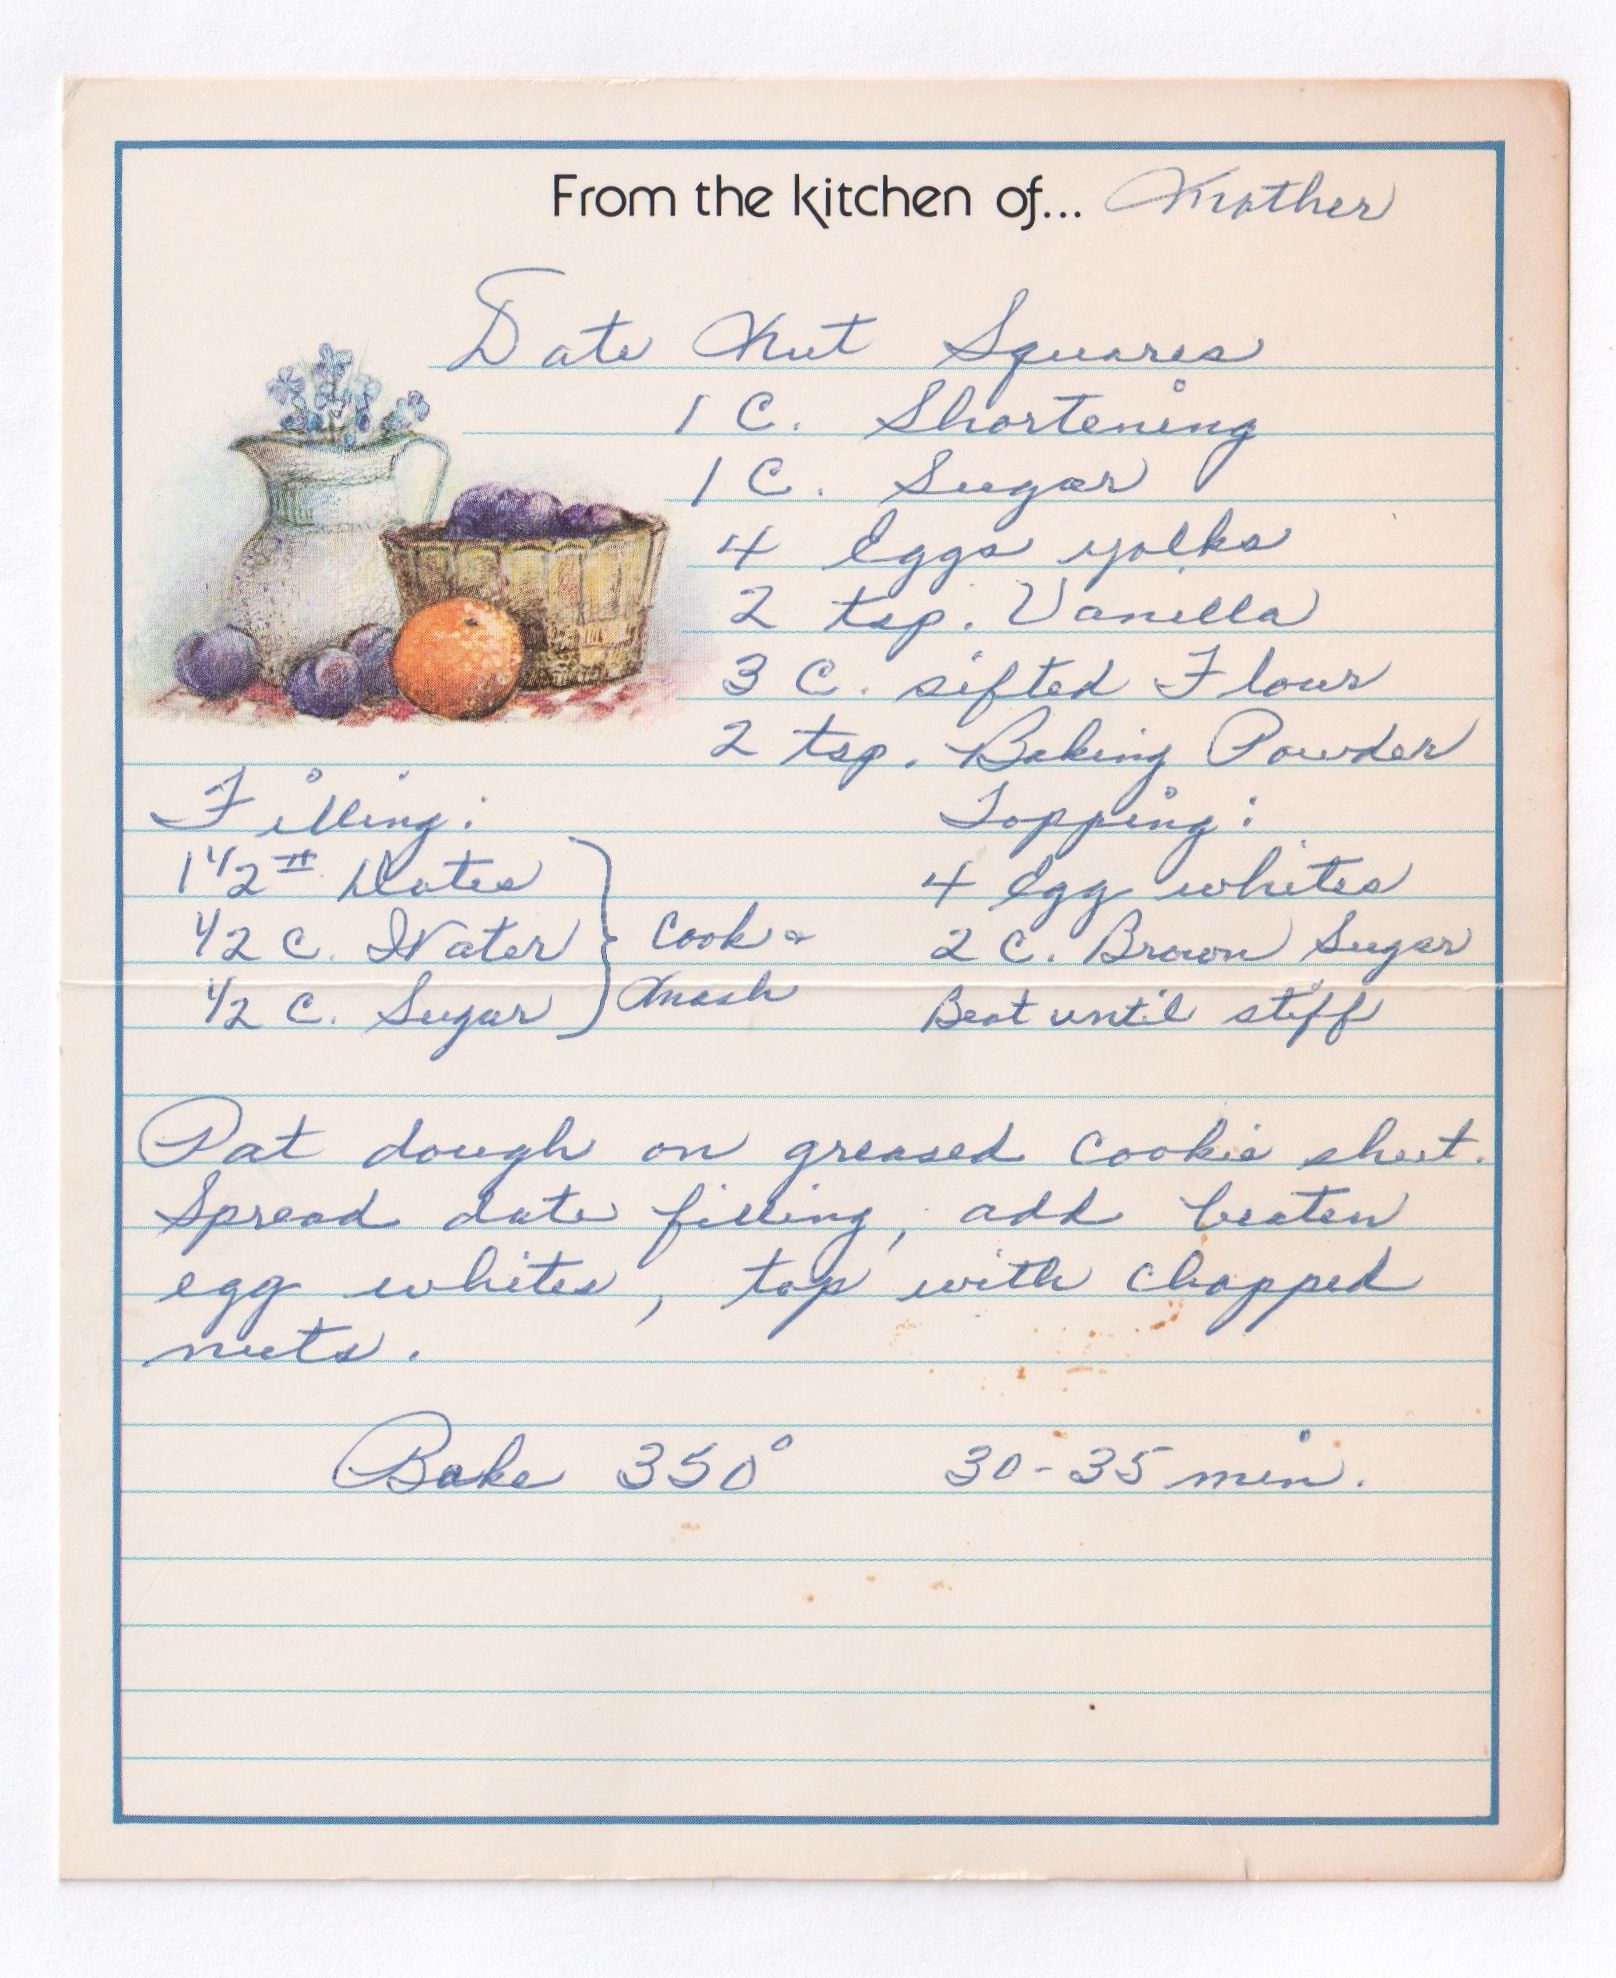 From the kitchen of... Mother
Date Nut Squares
1 C. Shortening
1 C. Sugar
4 Eggs yolks
2 tsp. Vanilla
3 C. sifted Flour
2 tsp. Baking Powder
Filling:
1 1/2 # Dates
1/2 C. Water
1/2 C. Sugar
Cook &
Mash
Topping:
4 Egg whites
2 C. Brown Sugar
Beat until stiff
Pat dough on greased cookie sheet.
Spread date filling, add beaten
egg whites, top with chopped
nuts.
Bake 350° 30-35 min.